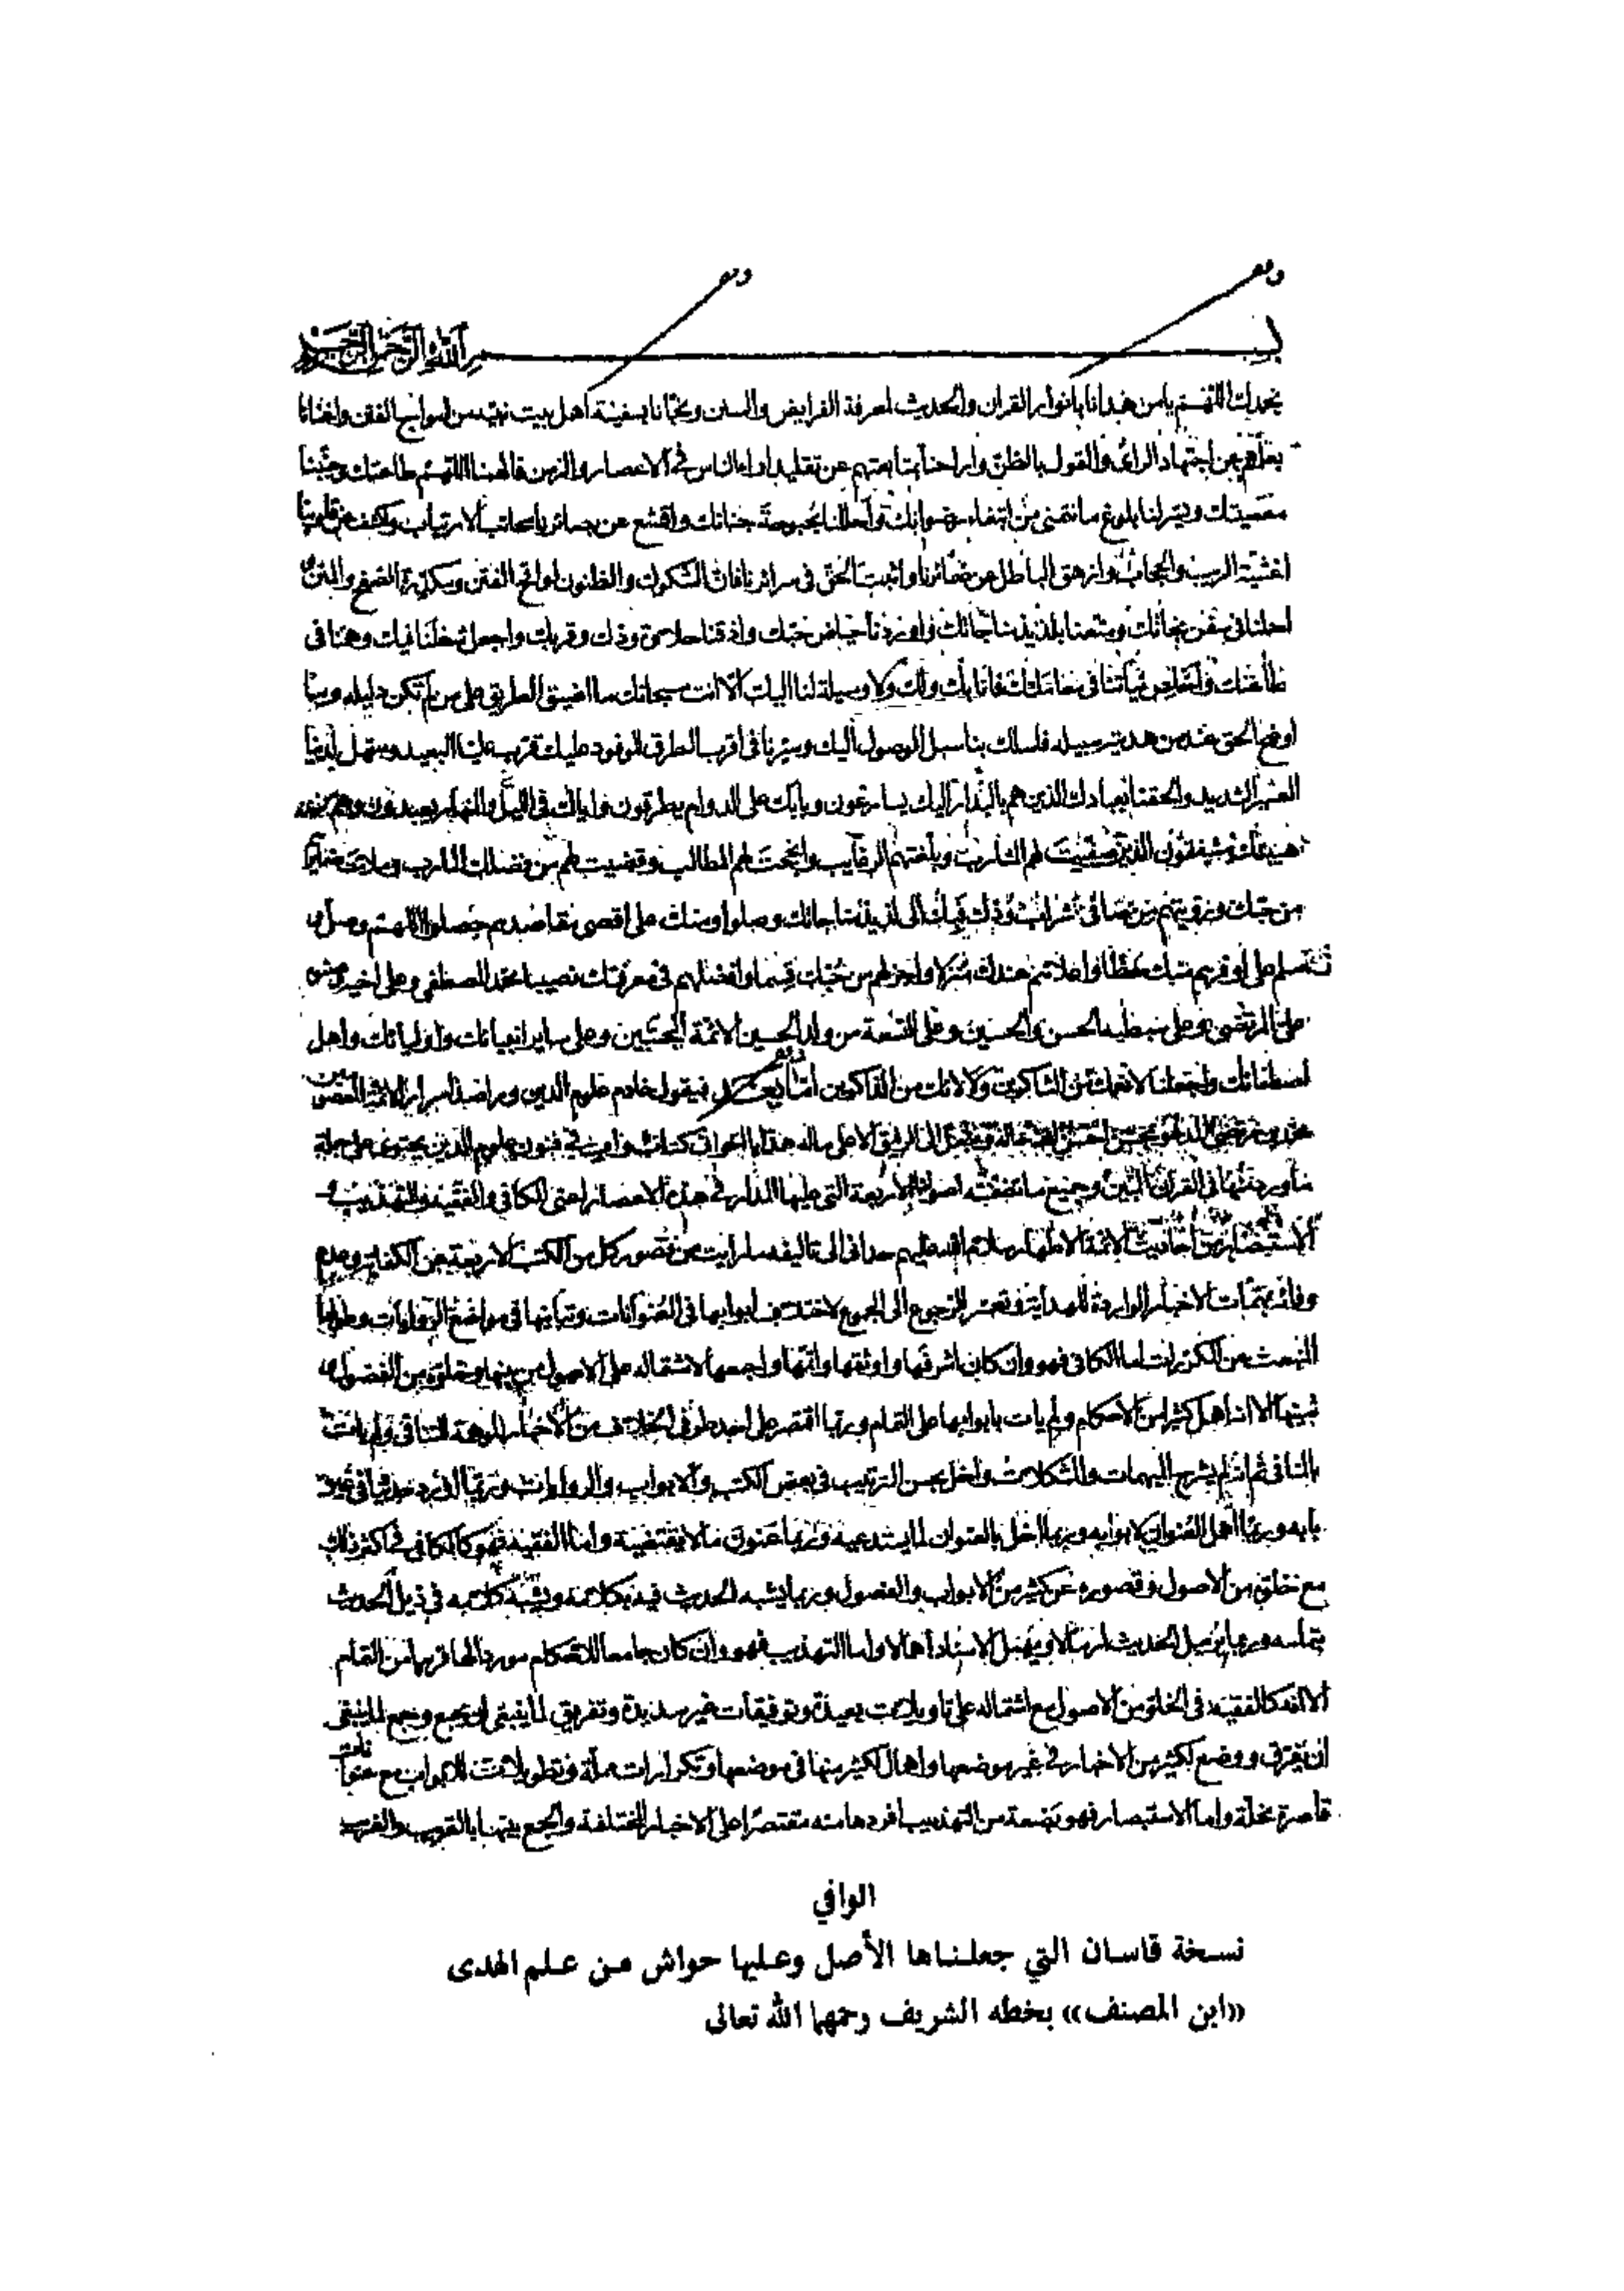 وبه
وبه
بسم الله الرحمن الرحيم
نحمدك اللهم يا من هدانا بانوار القران والحديث لمعرفة الفرايض والسنن ونجانا بسفينة اهل بيت نبيه من امواج الفتن واغنانا
عن اجتهاد الراى والقول بالظن واراحنا بمتابعتهم عن تقليد اراء الناس فى الاعصار والزمن فالهمنا اللهم طاعتك وجنبنا
معصيتك ويسر لنا بلوغ ما نتمنى من ابتغاء رضوانك واحللنا بحبوحة جنانك واقشع عن بصائرنا سحاب الارتياب واكشف عن قلوبنا
اغشية الريب والحجاب وازهق الباطل عن ضمائرنا واثبت الحق فى سرائرنا فان الشكوك والظنون لواقح الفتن ومكدرة الصفح والمنن
احملنا فى سفن نجاتك ومتعنا بلذيذ مناجاتك واوردنا حياض حبك واذقنا حلاوة ودك وقربك واجعل شغلنا فيك وهمنا فى
طاعتك واخلص نياتنا فى معاملتك فانا بك ولك ولا وسيلة لنا اليك الا انت سبحانك ما اضيق الطريق على من لم تكن دليله وما
اوضح الحق عند من هديته سبيله فاسلك بنا سبل الوصول اليك وسيرنا فى اقرب الطرق للوفود عليك قرب علينا البعيد وسهل لدينا
العسير الشديد والحقنا بعبادك الذين هم بالبدار اليك يسارعون وبابك على الدوام يطرقون واياك فى الليل والنهار يعبدون وهم من
هيبتك مشفقون الذين صفيت لهم المشارب وبلغتهم الرغايب وانجحت لهم المطالب وقضيت لهم من فضلك المارب وملات ضمائرهم
من حبك ورويتهم من صافى شراب ودك فبك الى لذيذ مناجاتك وصلوا ومنك على اقصى مقاصدهم حصلوا اللهم وصل و
سلم على اوفرهم منك حظا واعلاهم عندك منزلا واجزلهم من حبك قسما وافضلهم فى معرفتك نصيبا محمد المصطفى وعلى اخيه
على المرتضى وعلى سبطيه الحسن والحسين وعلى التسعة من ولد الحسين الائمة المجتبين وعلى ساير انبيائك واوليائك واهل
اصطفائك واجعلنا لانعمك من الشاكرين ولآلائك من الذاكرين اما بعد فيقول خادم علوم الدين وراصد اسرار الائمة المعصومين
محمد بن مرتضى المدعو بمحسن هذا يا اخوانى كتاب واف فى فنون علوم الدين يحتوى على جملة
ما ورد منها فى القران المبين وجميع ما تضمنته اصولنا الاربعة التى عليها المدار فى هذه الاعصار اعنى الكافى والفقيه والتهذيب و
الاستبصار من احاديث الائمة الاطهار سلام الله عليهم حدانى الى تاليفه ما رايت من قصور كل من الكتب الاربعة عن الكفاية وعدم
وفائه بمهمات الاخبار الواردة للهداية وتعسر الرجوع الى المجموع لاختلاف ابوابها فى العنوانات وتباينها فى مواضع الروايات وطولها
المنبعث عن المكررات اما الكافى فهو وان كان اشرفها واوثقها واتمها واجمعها لاشتماله على الاصول من بينها وخلوه من الفضول و
شينها الا انه اهمل كثيرا من الاحكام ولم يات بابوابها على التمام وربما اقتصر على احد طرفى الخلاف من الاخبار الموهمة للتنافى ولم يات
بالمنافى ثم انه لم يشرح المبهمات والمشكلات واخل بحسن الترتيب فى بعض الكتب والابواب والروايات وربما اورد حديثا فى غير
بابه وربما اهمل العنوان لابوابه وربما اخل بالعنوان لما يستدعيه وربما عنون ما لا يقتضيه واما الفقيه فهو كالكافى فى اكثر ذلك
مع خلوه من الاصول وقصوره عن كثير من الابواب والفصول وربما يشبه الحديث فيه بكلامه ويشبه كلامه فى ذيل الحديث
بتمامه وربما يرسل الحديث ارسالا ويهمل الاسناد اهمالا واما التهذيب فهو وان كان جامعا للاحكام موردا لها قريبا من التمام
الا انه كالفقيه فى الخلو من الاصول مع اشتماله على تاويلات بعيدة وتوفيقات غير سديدة وتفريق لما ينبغى ان يجمع وجمع لما ينبغى
ان يفرق ووضع لكثير من الاخبار فى غير موضعها واهمال لكثير منها فى موضعها وتكرارات مملة وتطويلات للابواب مع عنوانات
قاصرة مخلة واما الاستبصار فهو بضعة من التهذيب افردها منه مقتصرا على الاخبار المختلفة والجمع بينها بالقريب والغريب
الوافي
نسخة قاسان التي جعلناها الأصل وعليها حواش من علم الهدى
((ابن المصنف)) بخطه الشريف رحمهما الله تعالى